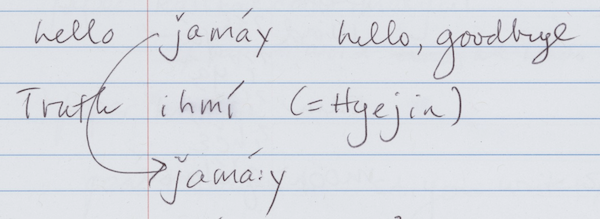 hello ǰamáy hello, goodbye
Truth ihmí (=Hyejin)
ǰamá:y